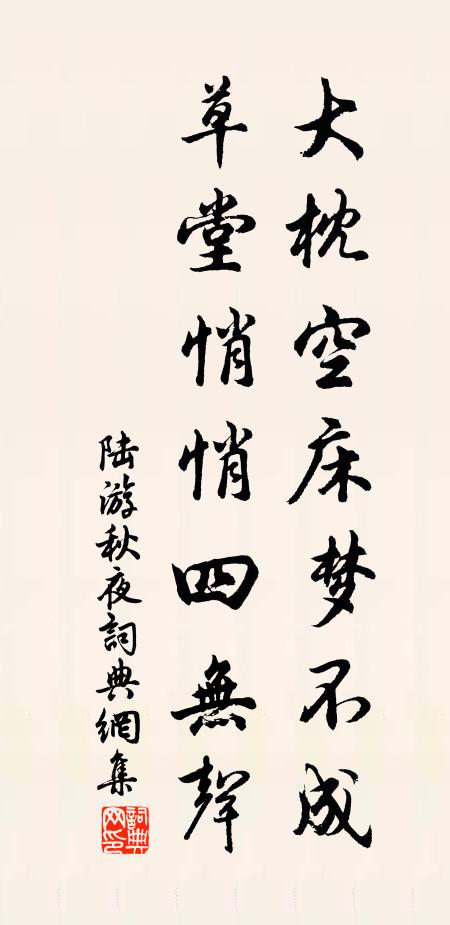 大枕空床梦不成
草堂悄悄四無聲
陆游秋夜詞典網集
詞典
网印